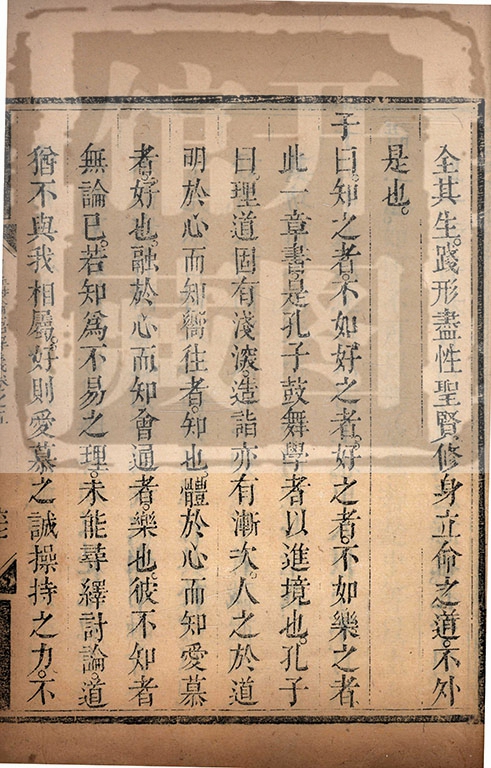 全其生。踐形盡性聖賢修身立命之道。不外
是也。
子曰。知之者。不如好之者。好之者。不如樂之者
此一章書。是孔子鼓舞學者以進境也。孔子
曰。理道固有淺深。造詣亦有漸次。人之於道
明於心而知嚮往者。知也體於心而知愛慕
者。好也。融於心而知會通者。樂也彼不知者
無論已。若知爲不易之理。未能尋繹討論。道
猶不與我相屬。好則愛慕之誠操持之力。不